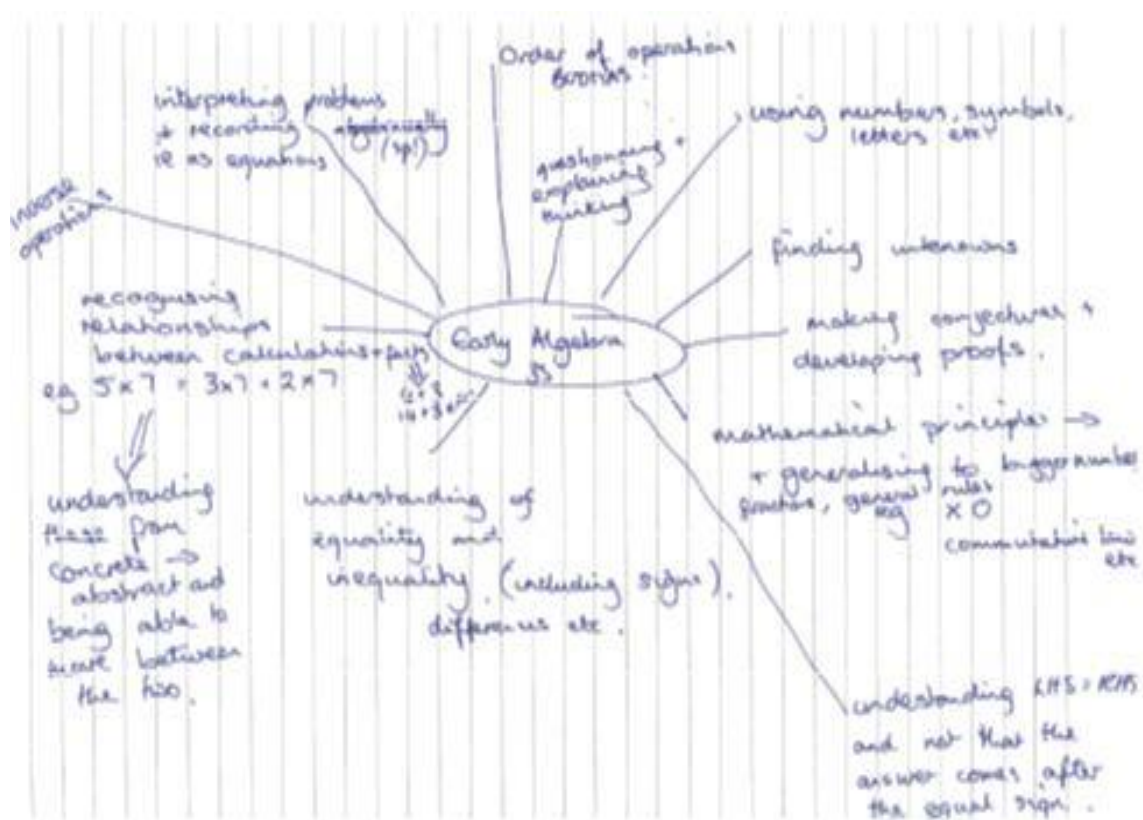 Order of operations
BODMAS.
interpreting problems
+ recording algebraically
(sp!)
ie as equations
questionning +
explaining
thinking
using numbers, symbols,
letters etc
inverse
operations
finding unknowns
recognising
relationships
between calculations + facts
eg 5x7 = 3x7 + 2x7
Early Algebra
is
making conjectures +
developing proofs.
mathematical principles →
+ generalising to bigger number
fractions, general rules
eg x 0
commutative law
etc
understanding
these from
concrete →
abstract and
being able to
move between
the two.
understanding of
equality and
inequality. (including signs),
differences etc.
understanding LHS = RHS
and not that the
answer comes after
the equal sign.